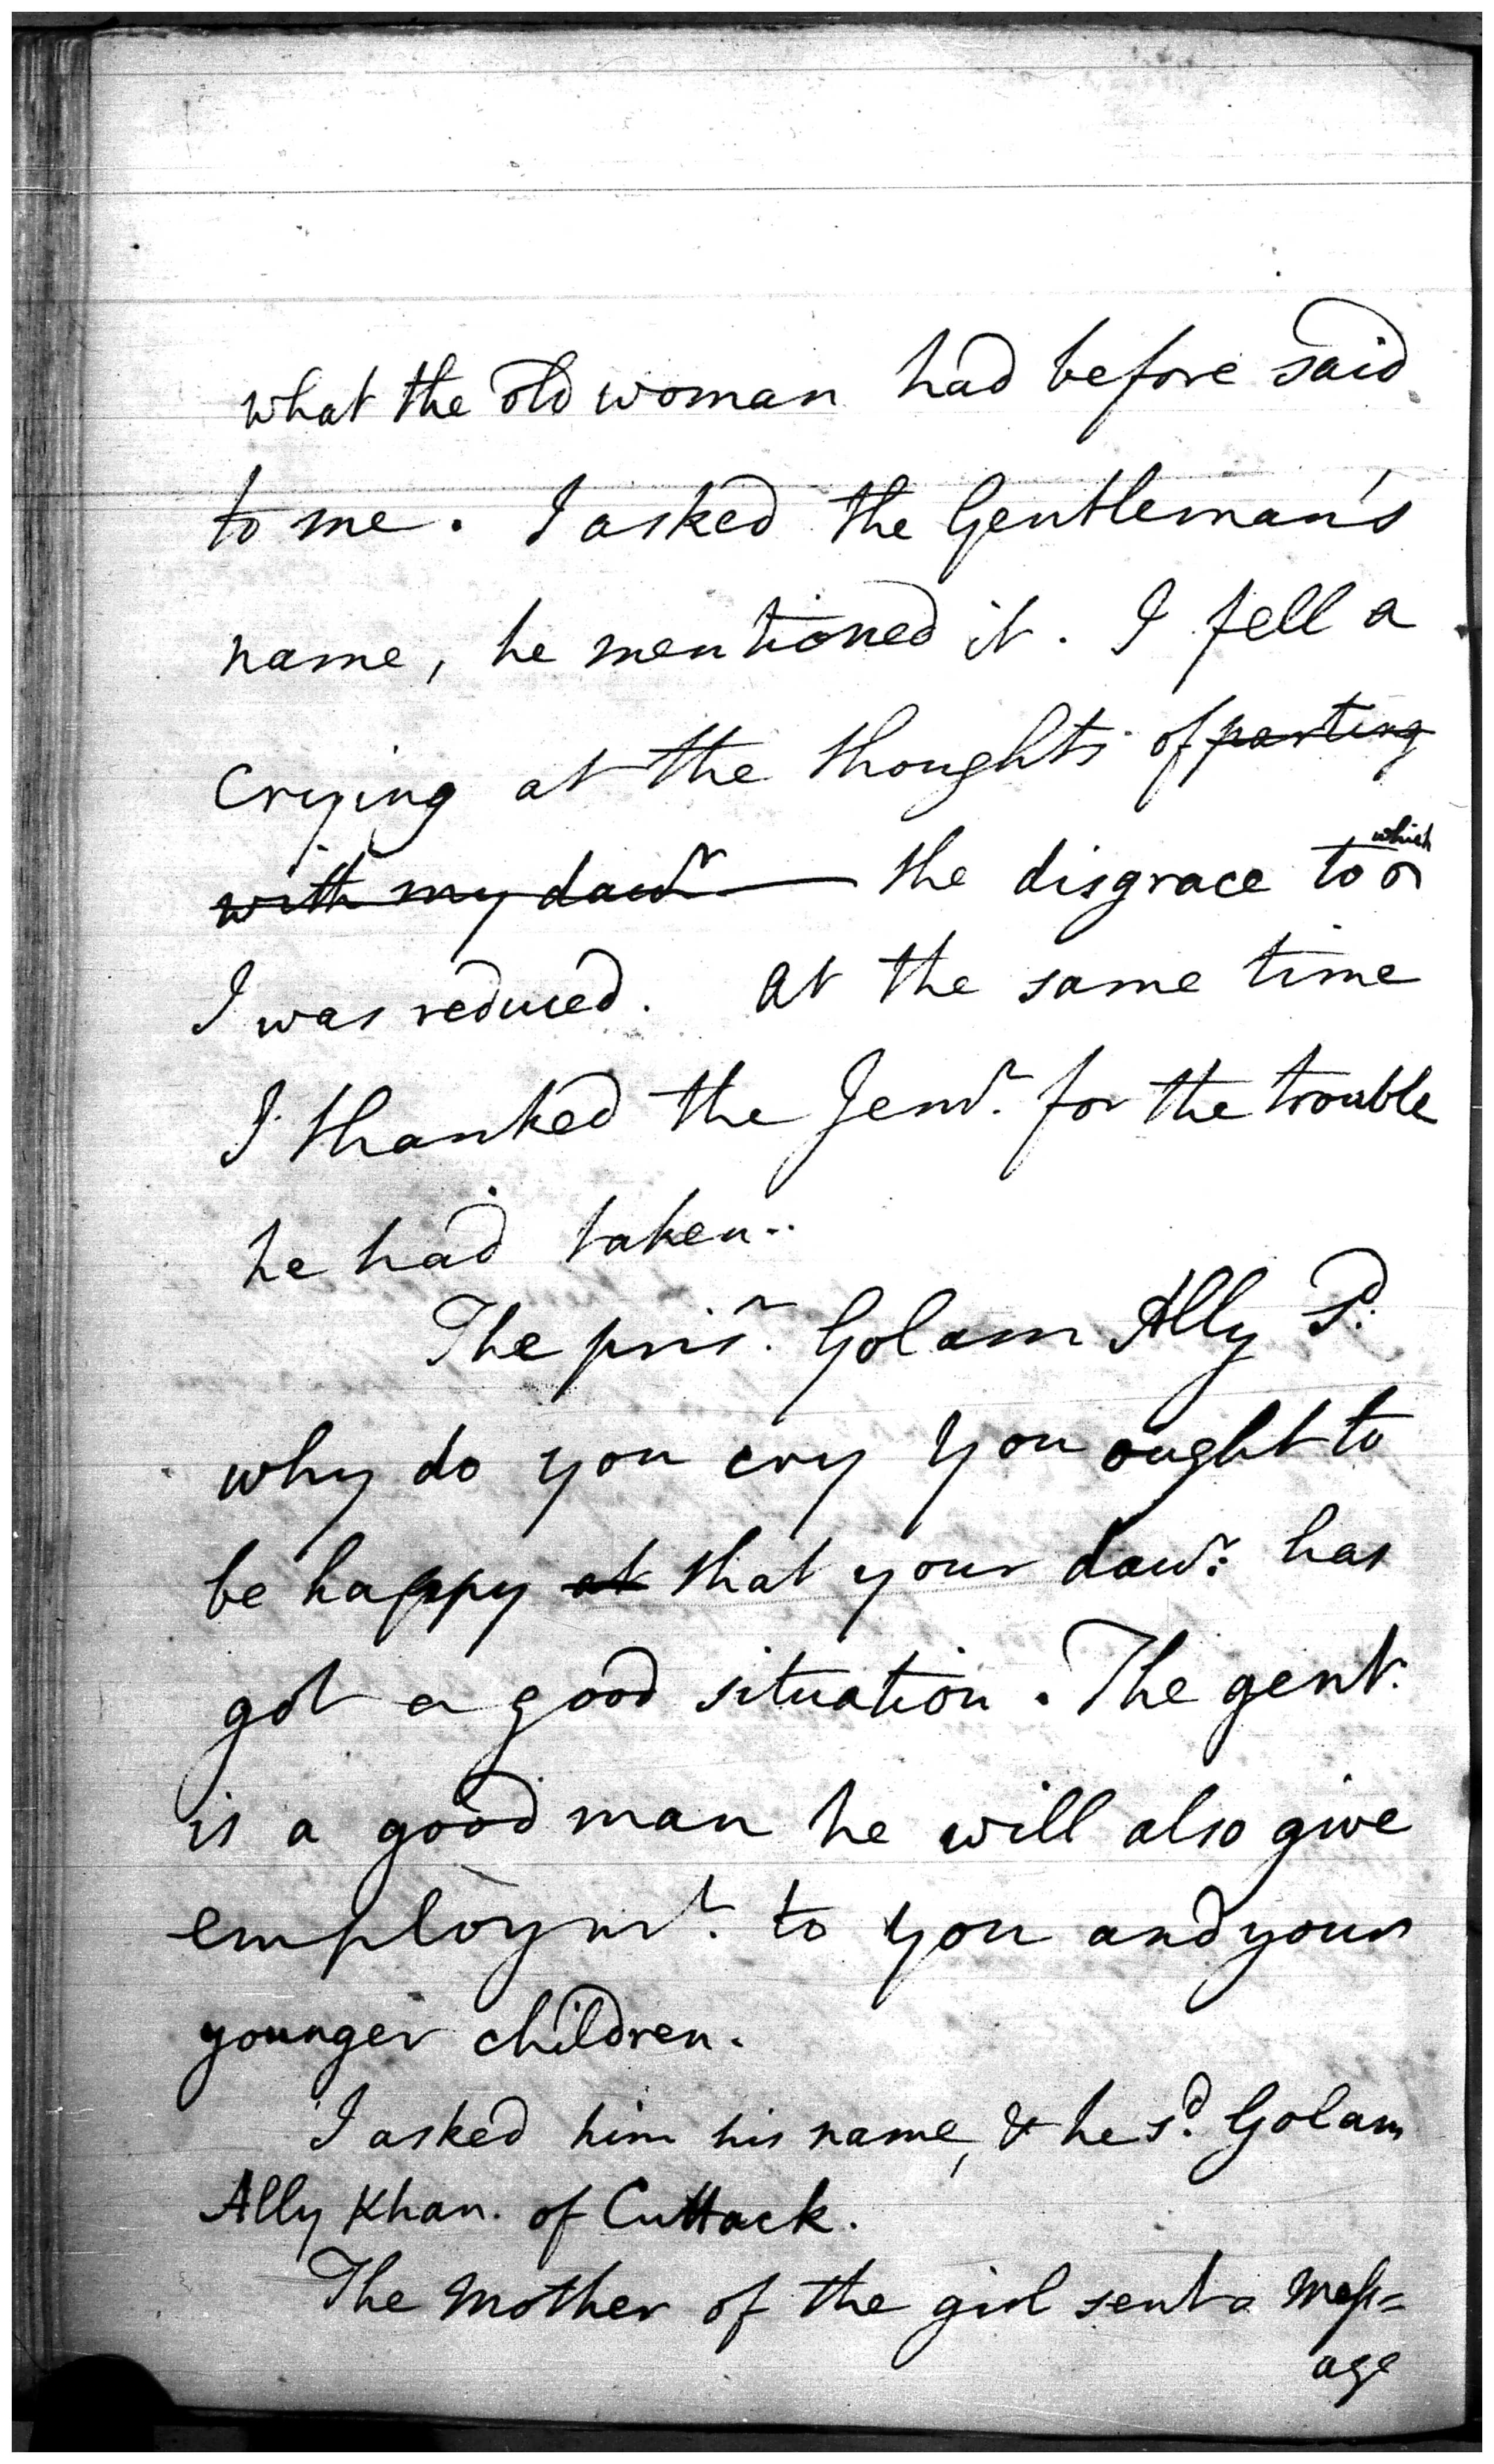 what the old woman had before said
to me. I asked the Gentleman's
name, he mentioned it. I fell a
crying at the thoughts of parting
with my daur the disgrace to which
I was reduced. at the same time
I thanked the Jemr. for the trouble
he had taken..
The prisr. Golam Ally Sd.
why do you cry you ought to
be happy at that your daur: has
got a good situation. The gent.
is a good man he will also give
employmt. to you and your
younger children.
I asked him his name, & he sd. Golam
Ally Khan. of Cuttack.
The Mother of the girl sent a Mess=
age